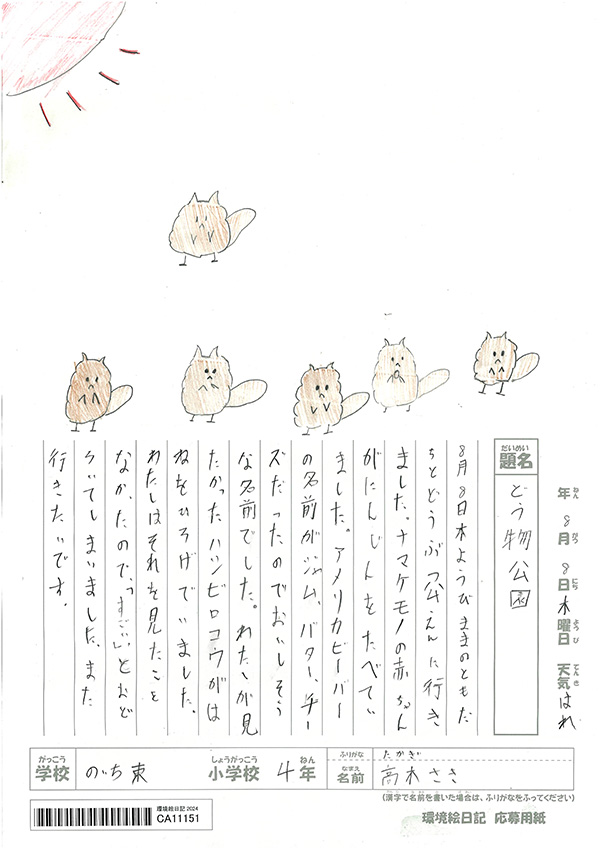 年 8月 8日 木曜日 天気 はれ
ねん がつ にち ようび てんき
だいめい
題名
どう物公園
8月8日木ようびままのともだ
ちとどうぶつえんに行き
ました。ナマケモノの赤ちゃん
がにんじんをたべてい
ました。アメリカビーバー
の名前がジャム、バター、チー
ズだったのでおいしそう
な名前でした。わたしが見
たかったハシビロコウがは
ねをひろげていました。
わたしはそれを見たこと
なかったので、「すごい」とおど
ろいてしまいました。また
行きたいです。
がっこう しょうがっこう ねん ふりがな たかぎ
学校 のち東 小学校 4年 なまえ 名前 高木ささ
(漢字で名前を書いた場合は、ふりがなをふってください)
環境絵日記 2024
CA11151
環境絵日記 応募用紙